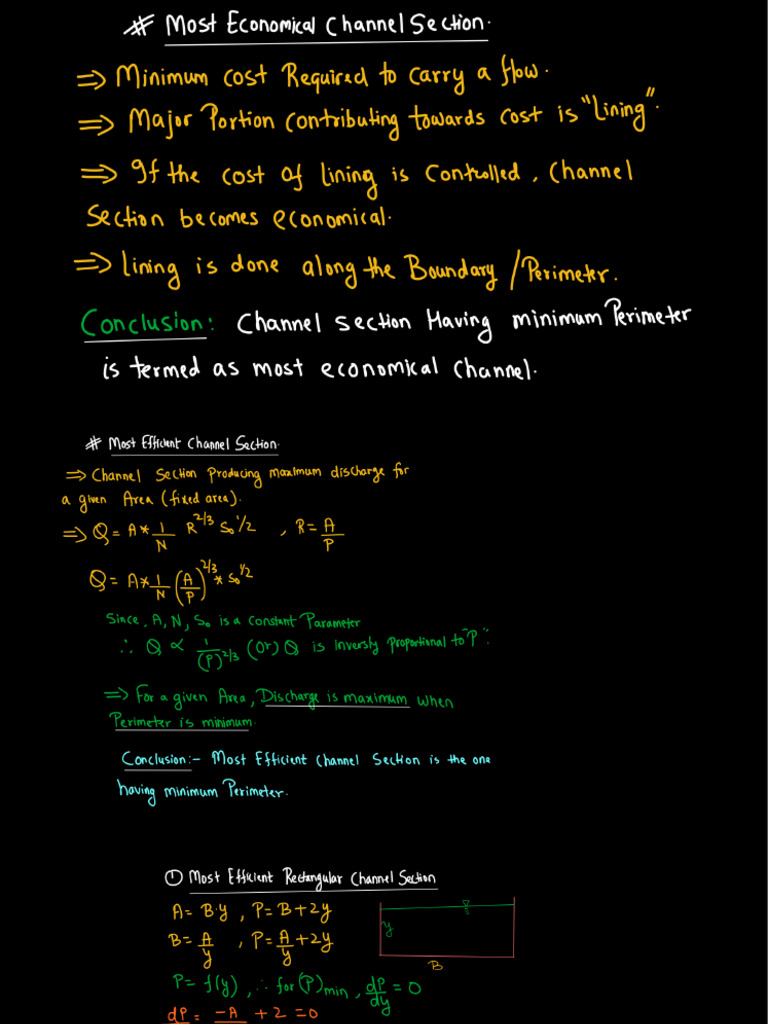 # Most Economical Channel Section.
⇒ Minimum cost Required to carry a flow.
⇒ Major Portion contributing towards cost is "Lining".
⇒ If the cost of lining is controlled, channel
Section becomes economical.
⇒ Lining is done along the Boundary / Perimeter.
Conclusion: Channel section Having minimum Perimeter
is termed as most economical channel.
# Most Efficient Channel Section.
⇒ Channel Section Producing maximum discharge for
a given Area (fixed area).
⇒ Q = A * 1/N R^2/3 So^1/2 , R = A/P
Q = A * 1/N (A/P)^2/3 * So^1/2
Since, A, N, So is a constant Parameter
∴ Q ∝ 1/(P)^2/3 (or) Q is inversly proportional to "P".
⇒ For a given Area, Discharge is maximum when
Perimeter is minimum.
Conclusion:- Most Efficient channel Section is the one
having minimum Perimeter.
① Most Efficient Rectangular Channel Section
A = B.y , P = B + 2y
B = A/y , P = A/y + 2y
y
B
P = f(y) , ∴ for (P)min , dP/dy = 0
dP = -A + 2 = 0